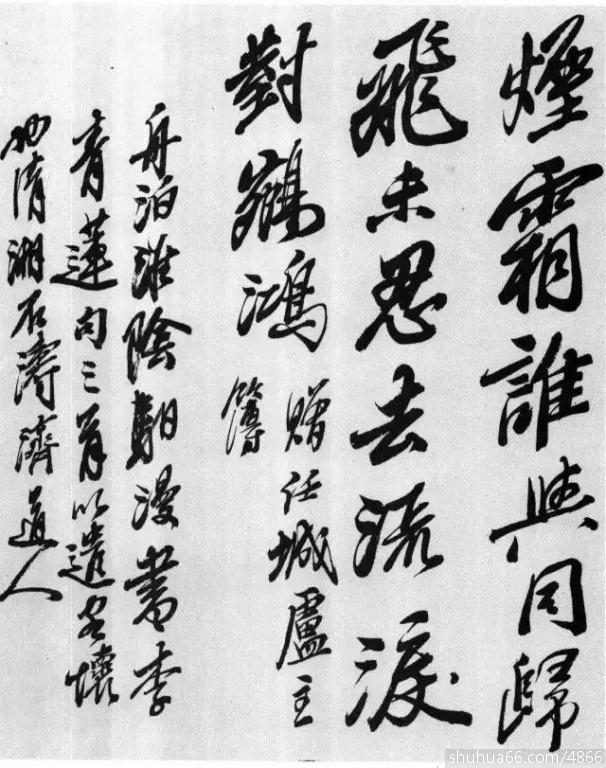 煙霜誰與同歸
飛未忍去流淚
對鵷鴻
贈任城盧主
簿
舟泊淮陰朝漫書李
青蓮句三首以遣客懷
也清湘石濤濟道人
shuhua66.com/4866